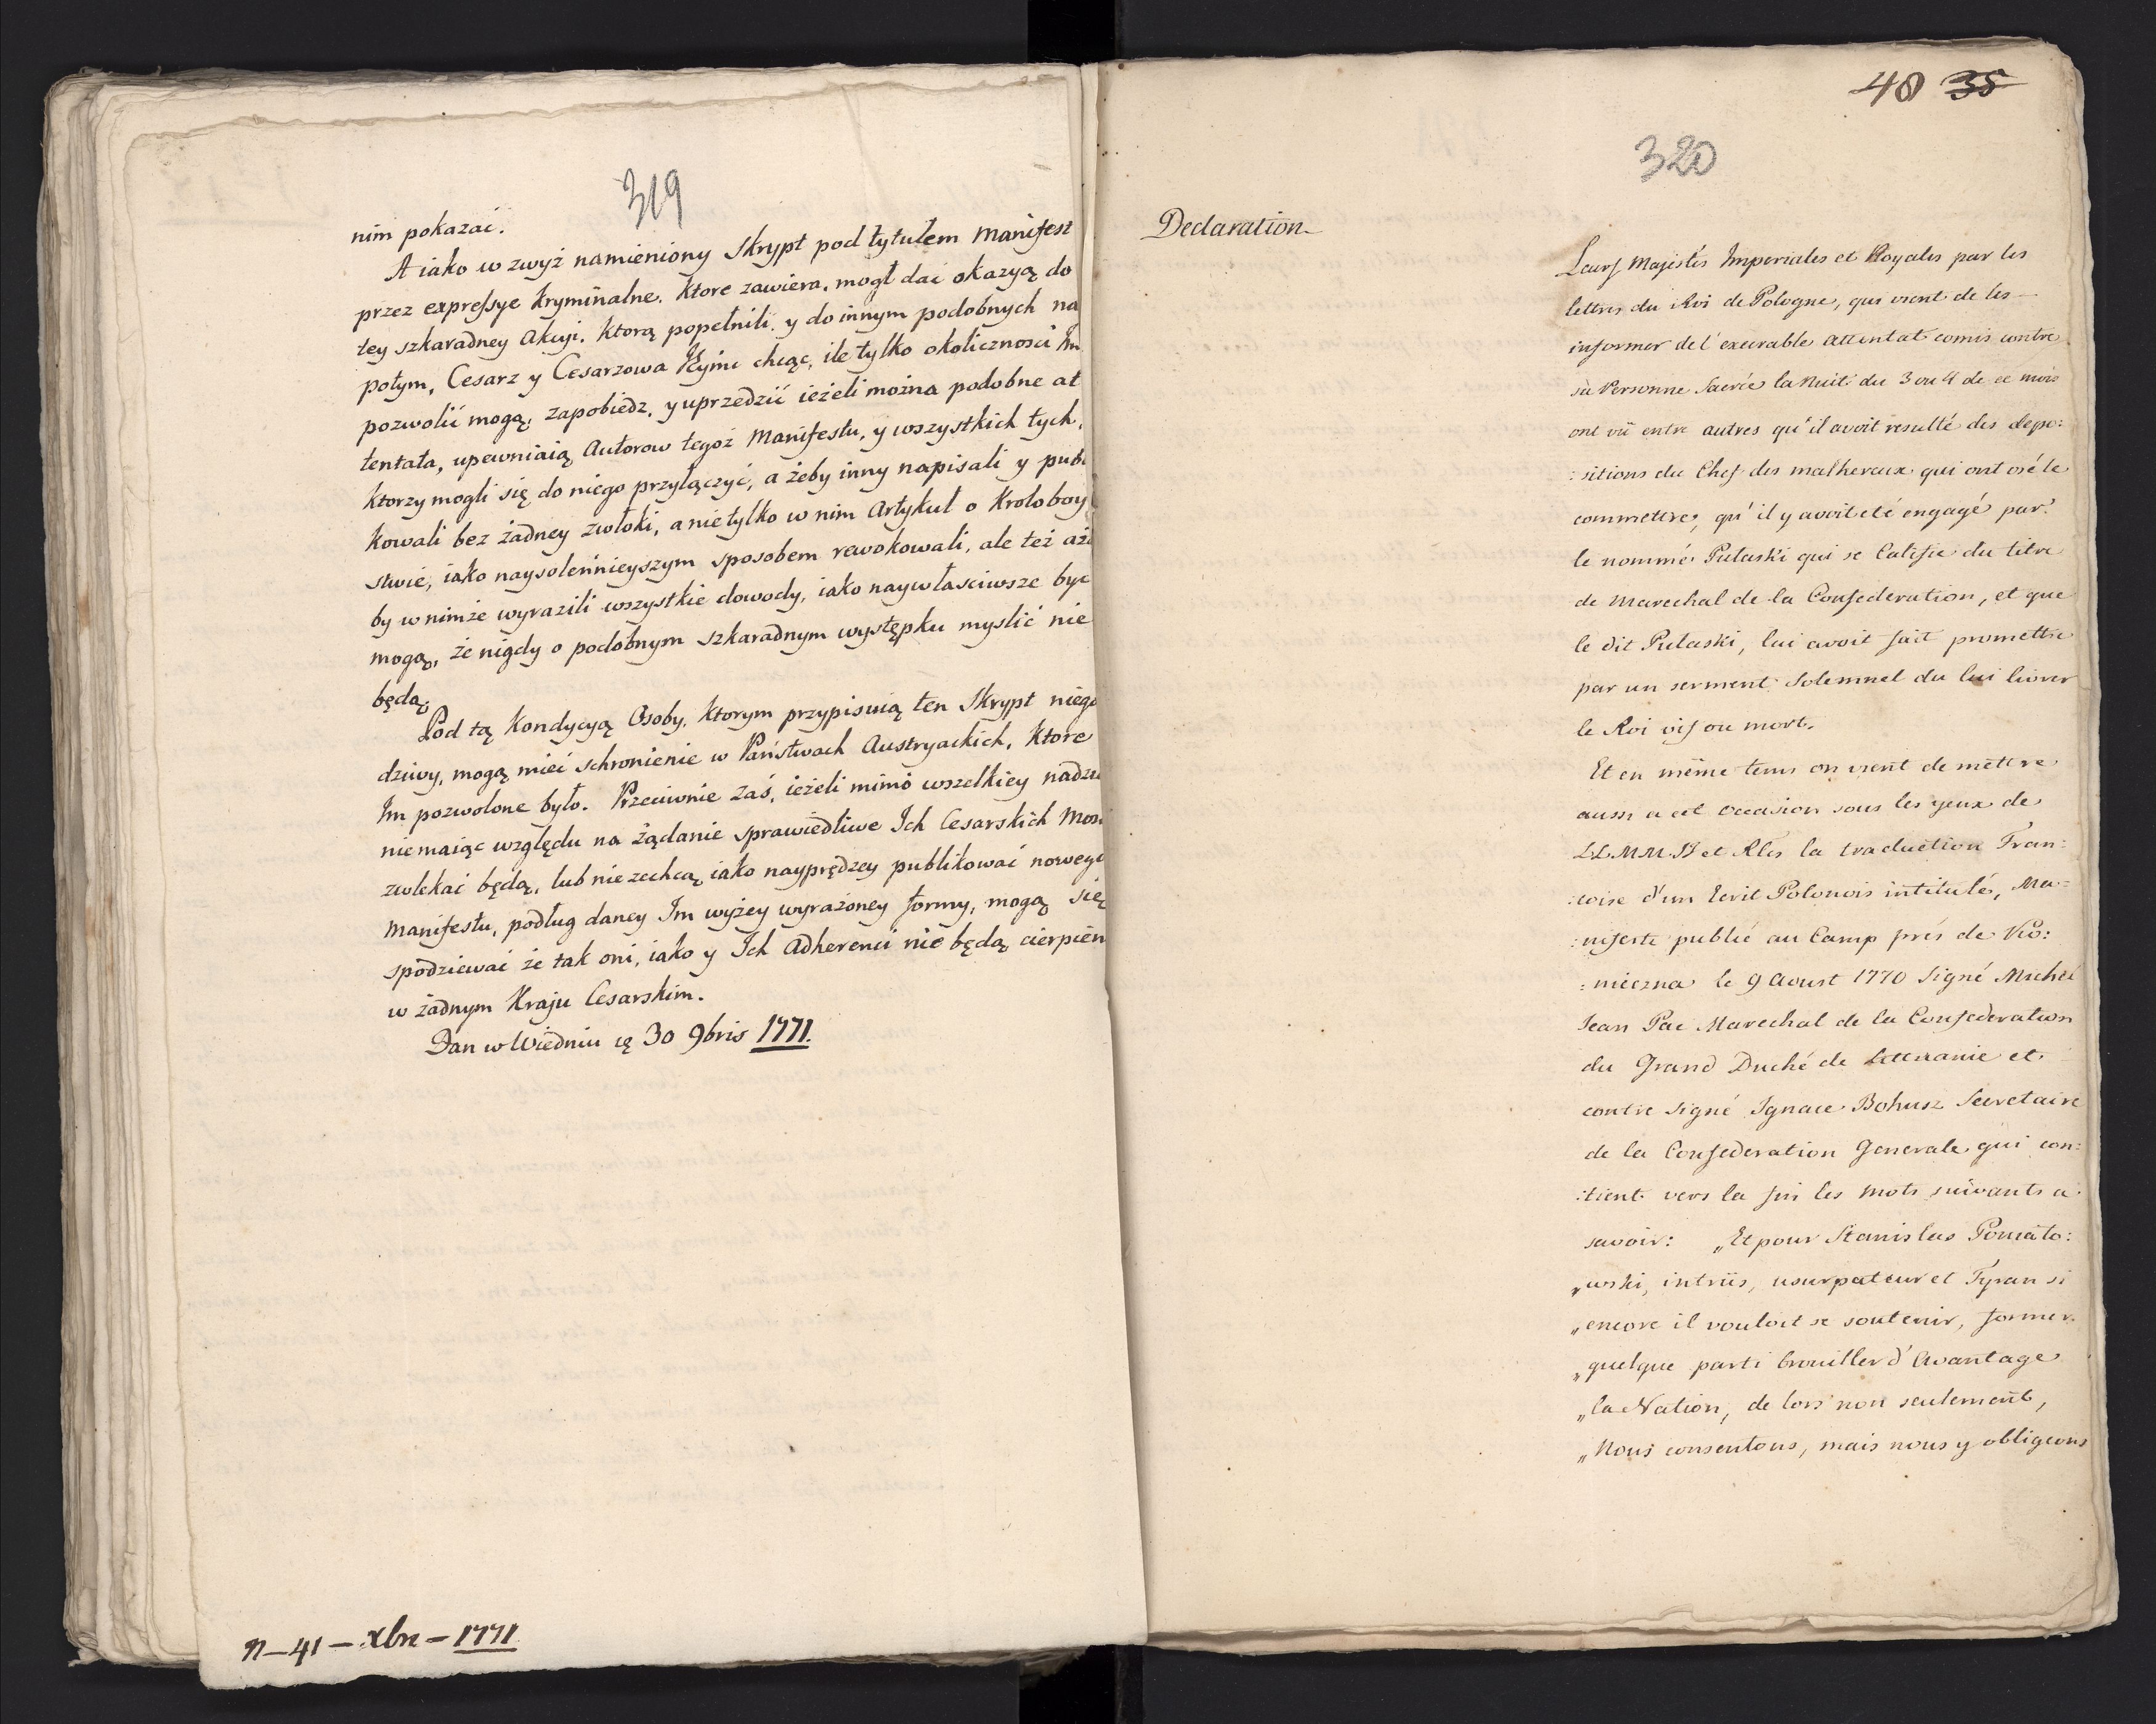 319
nim pokazać.
A iako w zwyż namieniony Skrypt pod tytułem Manifest
przez expressye kryminalne, ktore zawiera, mogł dać okazyą do
tey szkaradney Akcyi, ktorą popełnili, y do innym podobnych na
potym, Cesarz y Cesarzowa Rzymc chcąc, ile tylko okoliczności Im
pozwolić mogą, zapobiedz, y uprzedzić ieżeli można podobne at
tentata, upewniaią Autorow tegoż Manifestu, y wszystkich tych,
ktorzy mogli się do niego przyłączyć, a żeby inny napisali y publi
kowali bez żadney zwłoki, a nie tylko w nim Artykuł o Kroloboy
stwie, iako naysolennieyszym sposobem rewokowali, ale też aże
by w nimże wyrazili wszystkie dowody, iako naywłaściwsze być
mogą, że nigdy o podobnym szkaradnym występku myslić nie
będą.
Pod tą Kondycyą Osoby, ktorym przypisuią ten Skrypt niego
dziwy, mogą mieć schronienie w Państwach Austryackich, Ktore
Im pozwolone było. Przeciwnie zaś, ieżeli mimo wszelkiey nadzie
nie maiąc względu na żądanie sprawiedliwe Ich Cesarskich Mosc
zwlekać będą, lub nie zechcą iako nayprędzey publikować nowego
Manifestu, podług daney Im wyżey wyrażoney formy, mogą się
spodziewać że tak oni, iako y Ich Adherenci nie będą cierpien
w żadnym Kraju Cesarskim.
Dan w Wiedniu 30 9bris 1771.
n-41-xbr-1771
48 35
320
Declaration
Leurs Majestés Imperiales et Royales par les
lettres du Roi de Pologne, qui vient de les
informer de l'execrable attentat comis contre
sa Personne Sacrée la Nuit du 3 ou 4 de ce mois
ont vû entre autres qu'il avoit resulté des depo:
:sitions du Chef des malhereux qui ont osé le
commettre, qu'il y avoit eté engagé par
le nommé Pulaski qui se Califie du titre
de Marechal de la Confederation, et que
le dit Pulaski, lui avoit fait promettre
par un serment Solemnel du lui livrer
le Roi vif ou mort.
Et en même tems on vient de mettre
aussi a cet occasion sous les yeux de
LL.MM.II et Rles la traduction Fran:
:coise d'un Ecrit Polonois intitulé, Ma:
:nifeste publié au Camp prés de Kio:
:nieczna le 9 Aoust 1770 Signé Michel
Jean Pac Marechal de la Confederation
du Grand Duché de Littuanie et
contre signé Ignace Bohusz Secretaire
de la Confederation Generale qui con:
:tient vers la fin les mots suivants a
savoir: „Et pour Stanislas Poniato:
„wski, intrüs, usurpateur et Tyran si
„encore il vouloit se soutenir, former
„quelque parti brouiller d'Avantage
„la Nation, de lors non seulement,
„Nous consentons, mais nous y obligeons